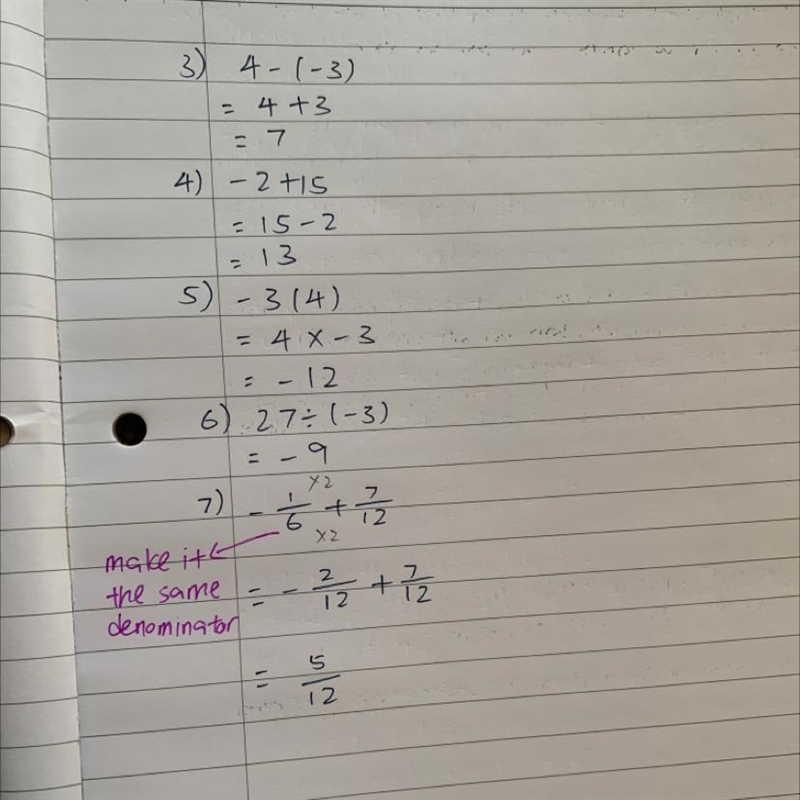 3) 4 - (-3)
= 4 + 3
= 7
4) - 2 + 15
= 15 - 2
= 13
5) - 3 (4)
= 4 x - 3
= - 12
6) 27 ÷ (-3)
= - 9
7) - 1/6 + 7/12
x2
x2
make it
the same
denominator
= - 2/12 + 7/12
= 5/12